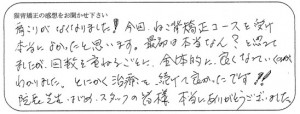 猫背矯正の感想をお聞かせ下さい
肩こりがなくなりました!今回、ねこ背矯正コースを受け
本当によかったと思います。最初は本当なん?と思って
ましたが、回数を重ねるごとに、全体的に良くなっていくのが
わかりました。とにかく治療を続けて良かったです!!
院長先生はじめ、スタッフの皆様、本当にありがとうございました